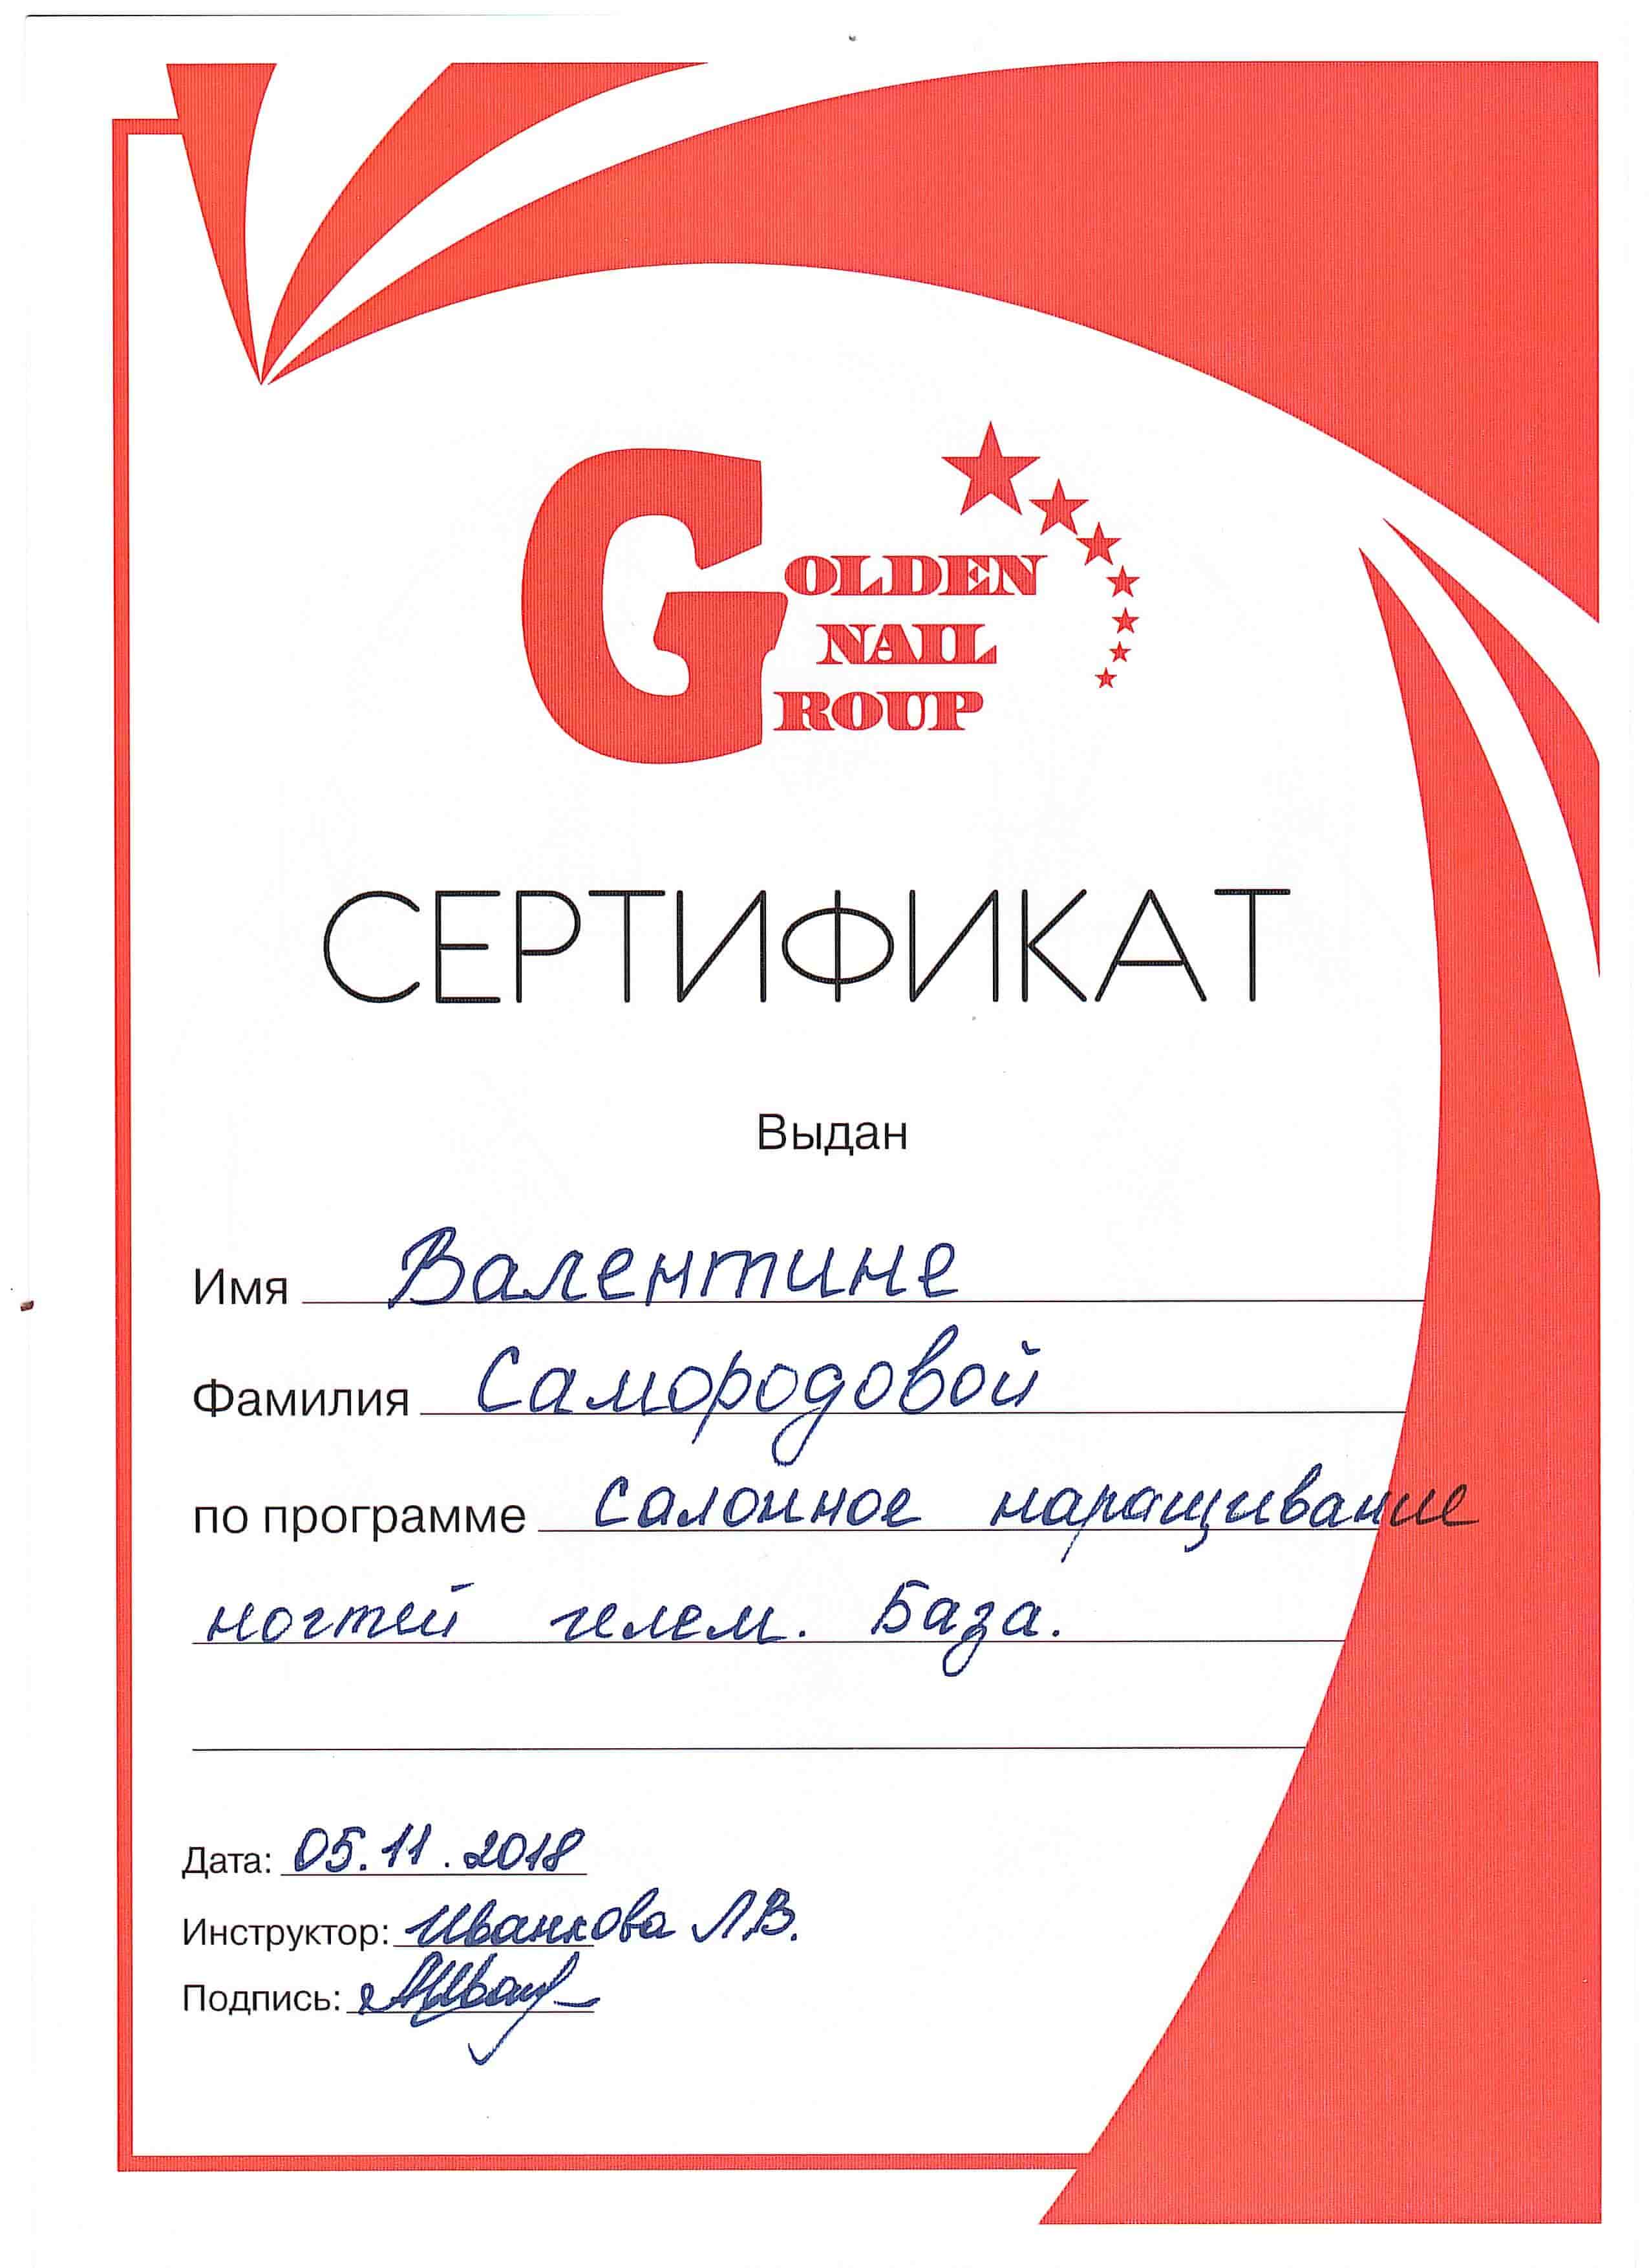 GOLDEN
NAIL
GROUP
СЕРТИФИКАТ
Выдан
Имя Валентине
Фамилия Самородовой
по программе Салонное наращивание
ногтей гелем. База.
Дата: 05.11.2018
Инструктор: Иванкова Л.В.
Подпись: